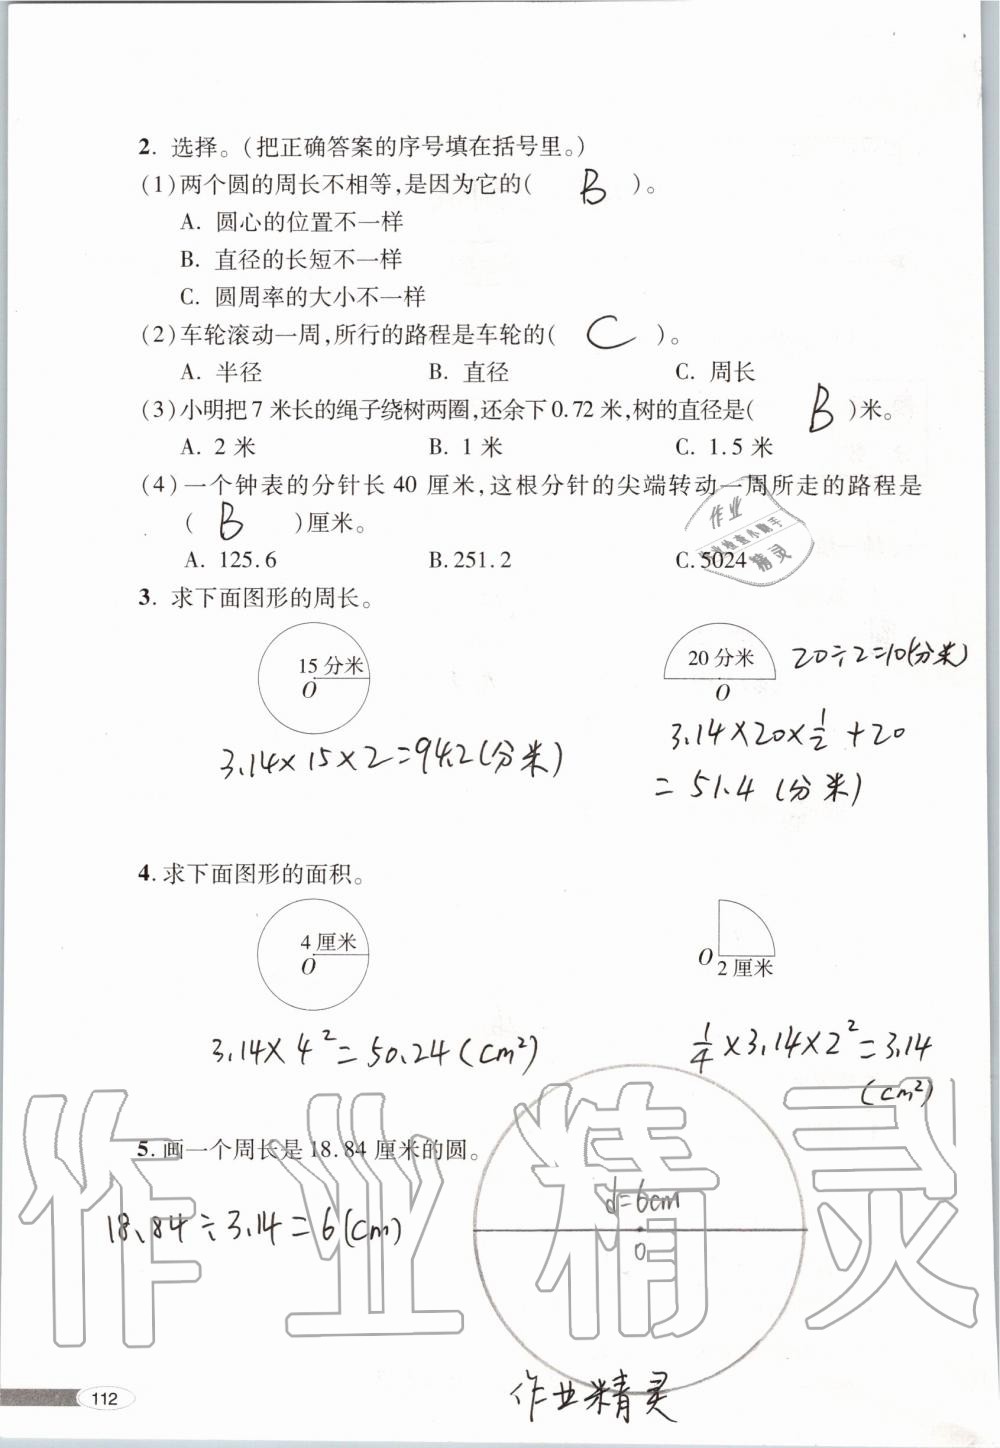 2. 选择。(把正确答案的序号填在括号里。)
(1)两个圆的周长不相等,是因为它的( B )。
A. 圆心的位置不一样
B. 直径的长短不一样
C. 圆周率的大小不一样
(2)车轮滚动一周,所行的路程是车轮的( C )。
A. 半径 B. 直径 C. 周长
(3)小明把7米长的绳子绕树两圈,还余下0.72米,树的直径是( B )米。
A. 2米 B. 1米 C. 1.5米
(4)一个钟表的分针长40厘米,这根分针的尖端转动一周所走的路程是
( B )厘米。
作业
作业检查小助手
精灵
A. 125.6 B. 251.2 C. 5024
3. 求下面图形的周长。
15分米
O
20分米
O
20÷2=10(分米)
3.14×15×2=94.2(分米)
3.14×20×1/2+20
=51.4(分米)
4. 求下面图形的面积。
4厘米
O
O
2厘米
3.14×4²=50.24(cm²)
1/4×3.14×2²=3.14
(cm²)
5. 画一个周长是18.84厘米的圆。
18.84÷3.14=6(cm)
d=6cm
O
作业精灵
作业精灵
112